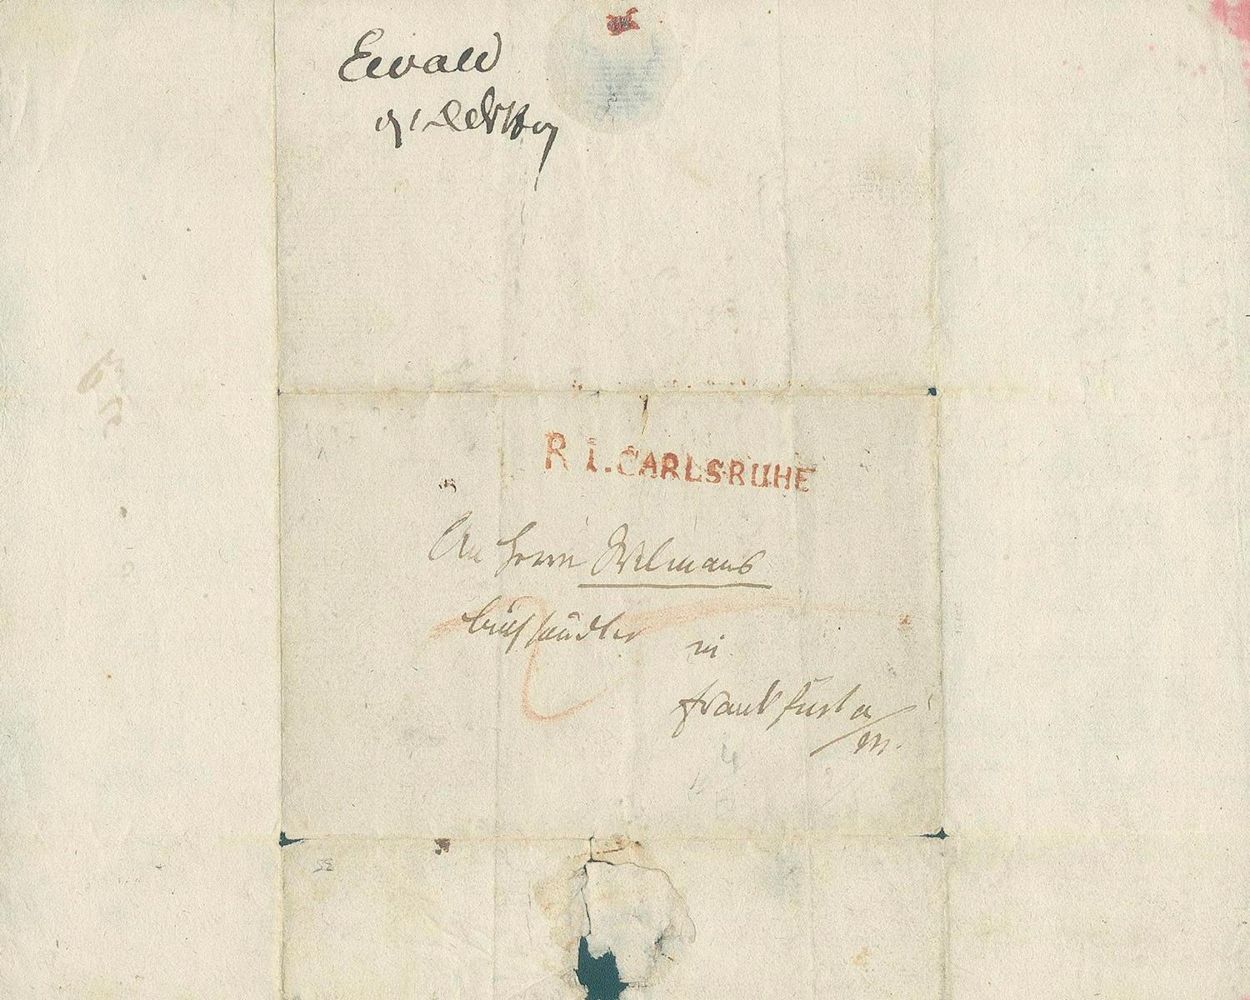 Ewald
R 1. CARLSRUHE
An Herrn Wilmans
Buchhändler in
Frankfurt a/m.